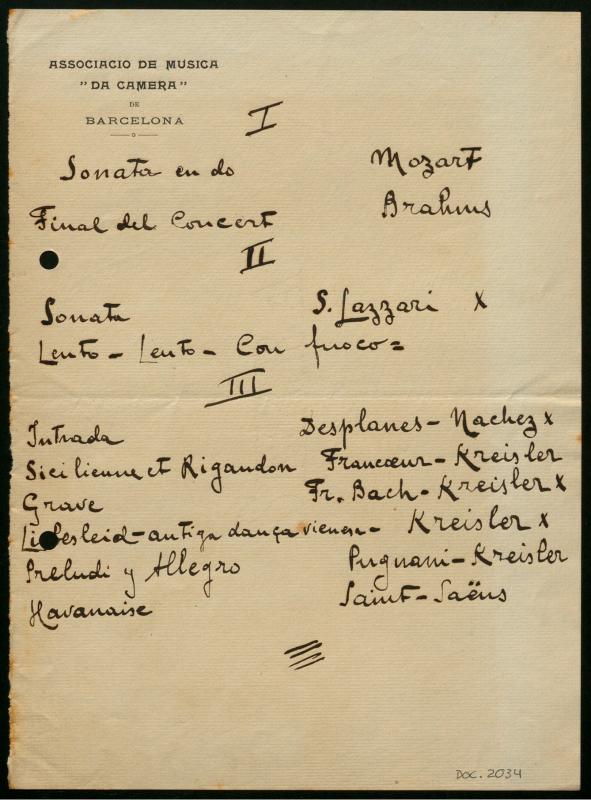 ASSOCIACIO DE MUSICA
"DA CAMERA"
DE
BARCELONA
I
Sonata en do Mozart
Final del Concert Brahms
II
Sonata S. Lazzari x
Lento - Lento - Con fuoco =
III
Intrada Desplanes - Nachez x
Sicilienne et Rigaudon Francœur - Kreisler
Grave Fr. Bach - Kreisler x
Liebesleid - antiga dança vienesa - Kreisler x
Preludi y Allegro Pugnani - Kreisler
Havanaise Saint-Saëns
DOC. 2034